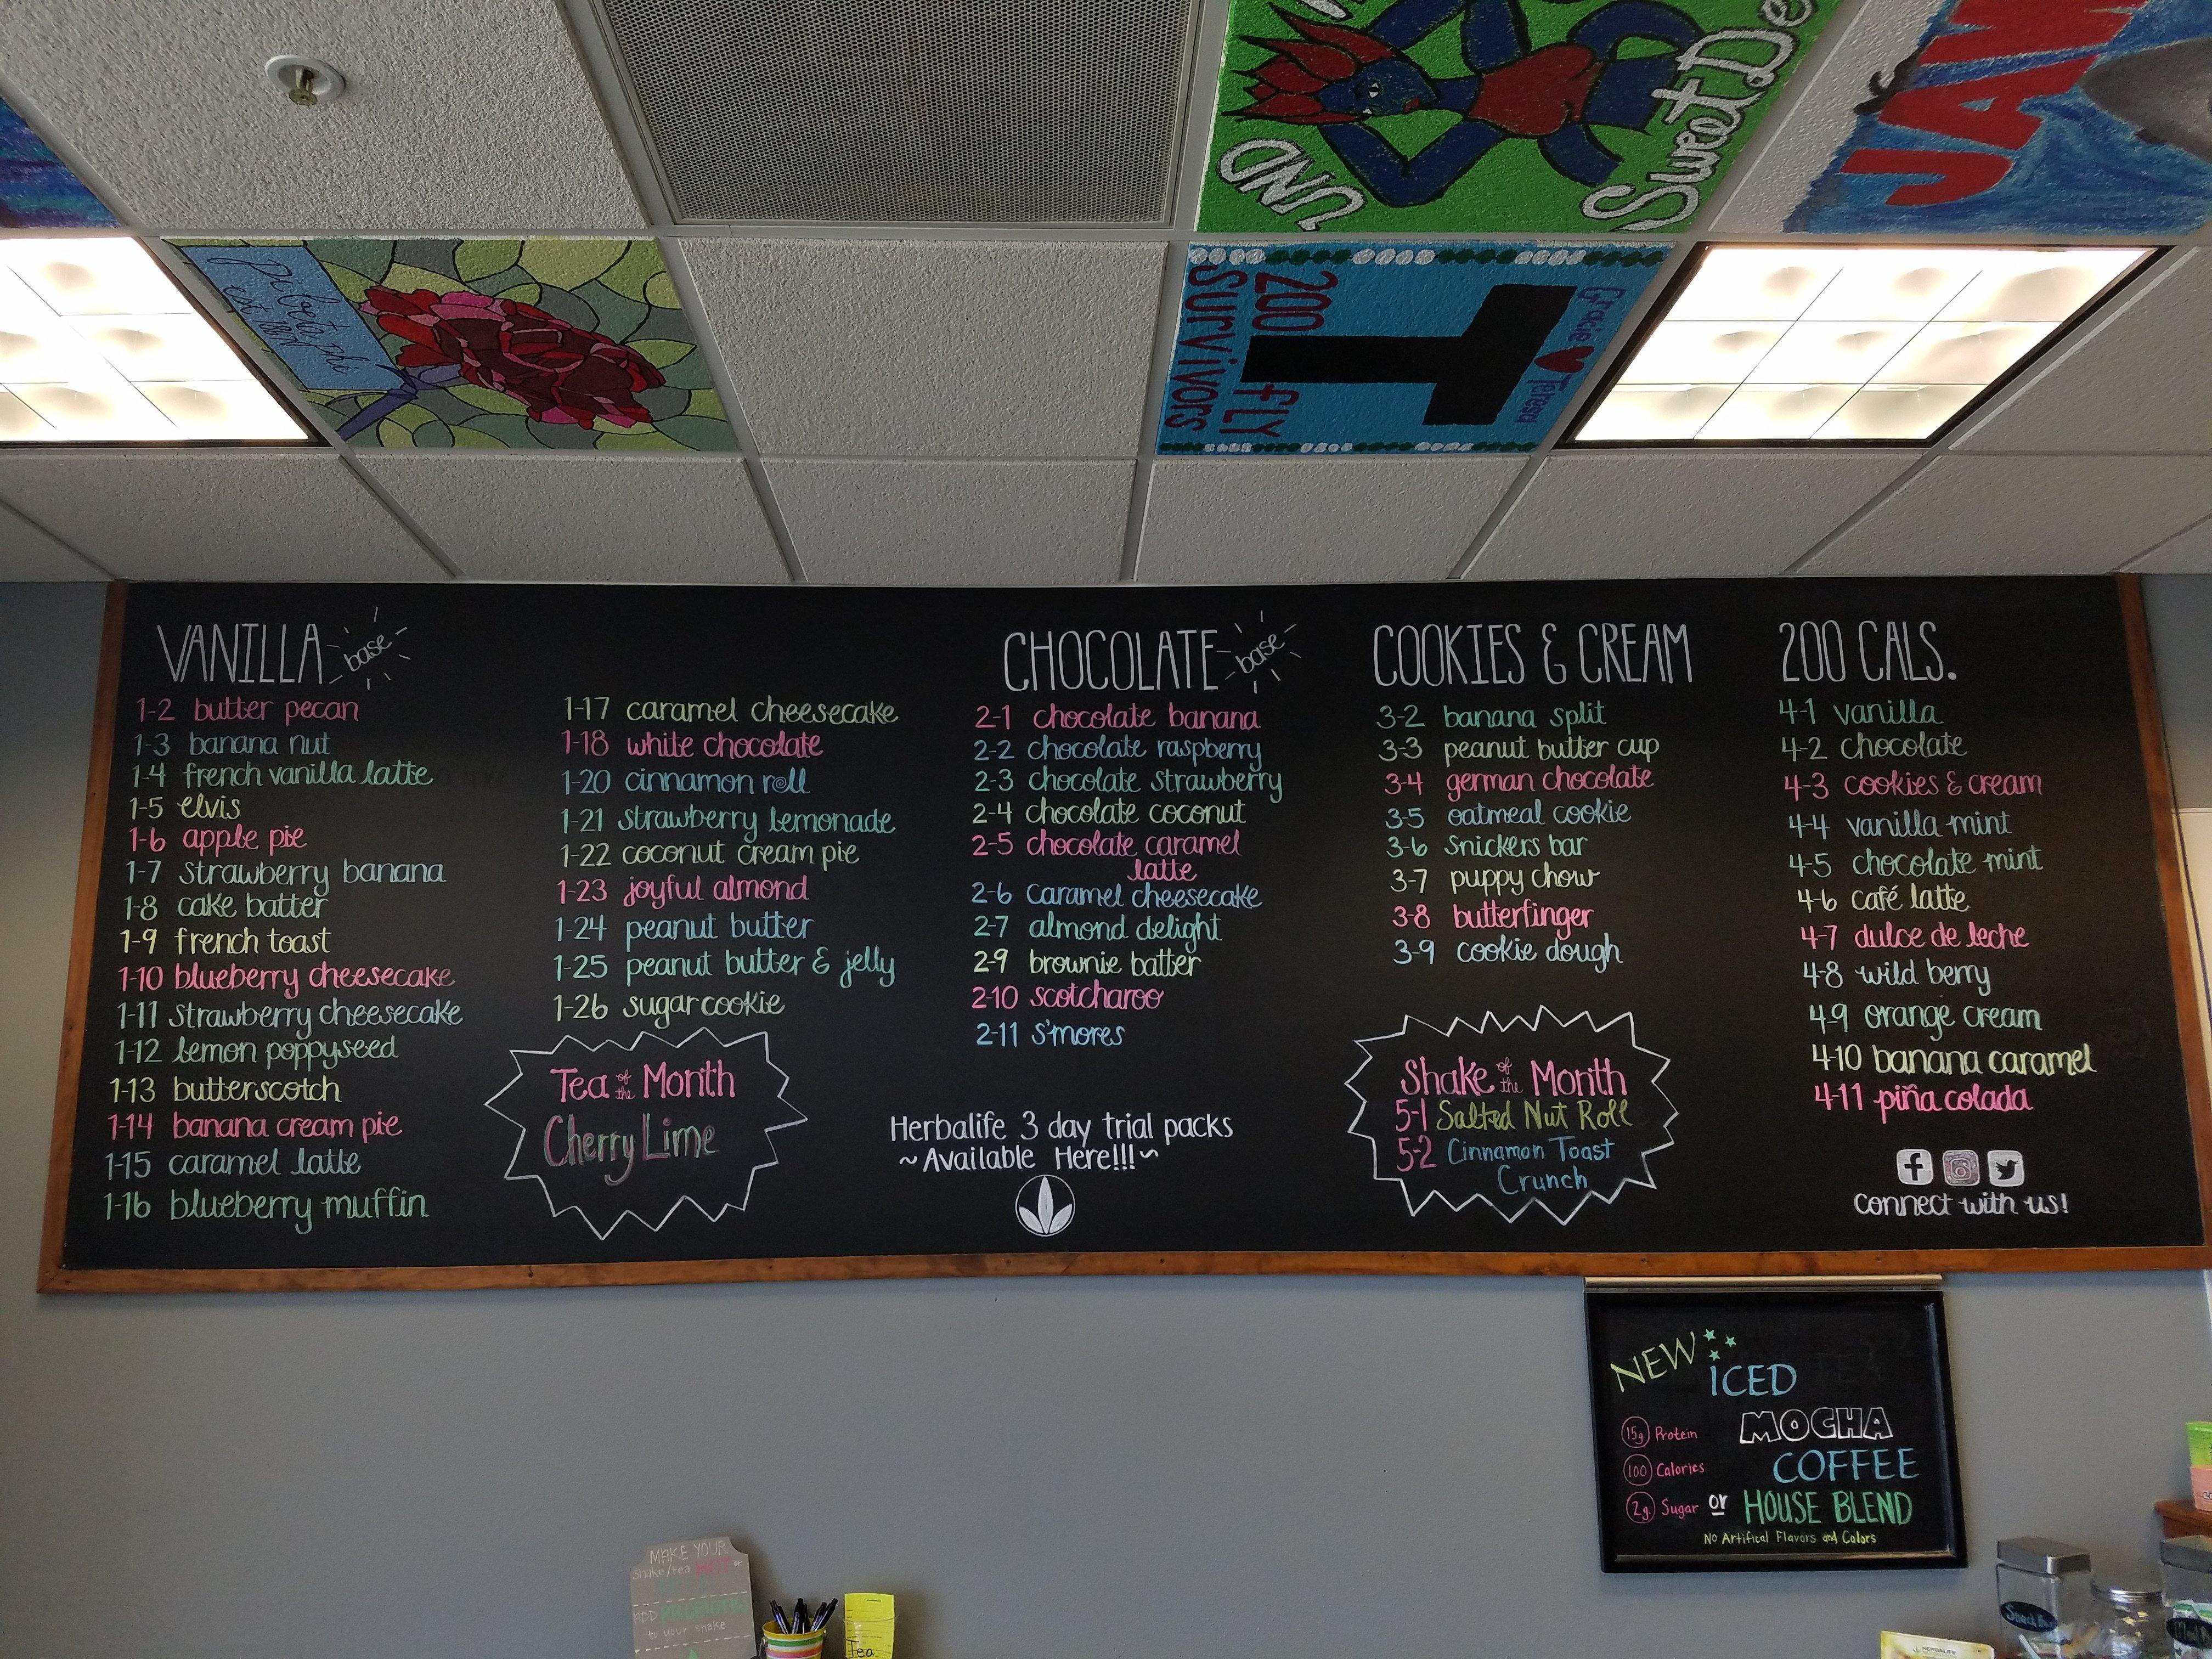 UND
Sweet De
JAW
pi beta phi
est. 1867
Gracie Teresa
200 FLY
Survivors
T
VANILLA base
1-2 butter pecan
1-3 banana nut
1-4 french vanilla latte
1-5 elvis
1-6 apple pie
1-7 strawberry banana
1-8 cake batter
1-9 french toast
1-10 blueberry cheesecake
1-11 strawberry cheesecake
1-12 lemon poppyseed
1-13 butterscotch
1-14 banana cream pie
1-15 caramel latte
1-16 blueberry muffin
1-17 caramel cheesecake
1-18 white chocolate
1-20 cinnamon roll
1-21 strawberry lemonade
1-22 coconut cream pie
1-23 joyful almond
1-24 peanut butter
1-25 peanut butter & jelly
1-26 sugar cookie
Tea of the Month
Cherry Lime
CHOCOLATE base
2-1 chocolate banana
2-2 chocolate raspberry
2-3 chocolate strawberry
2-4 chocolate coconut
2-5 chocolate caramel
latte
2-6 caramel cheesecake
2-7 almond delight
2-9 brownie batter
2-10 scotcharoo
2-11 s'mores
Herbalife 3 day trial packs
~Available Here!!!~
COOKIES & CREAM
3-2 banana split
3-3 peanut butter cup
3-4 german chocolate
3-5 oatmeal cookie
3-6 snickers bar
3-7 puppy chow
3-8 butterfinger
3-9 cookie dough
Shake of the Month
5-1 Salted Nut Roll
5-2 Cinnamon Toast
Crunch
200 CALS.
4-1 vanilla
4-2 chocolate
4-3 cookies & cream
4-4 vanilla mint
4-5 chocolate mint
4-6 café latte
4-7 dulce de leche
4-8 wild berry
4-9 orange cream
4-10 banana caramel
4-11 piña colada
connect with us!
NEW
ICED
MOCHA
COFFEE
or HOUSE BLEND
15g Protein
100 Calories
2g Sugar
No Artifical Flavors and Colors
MAKE YOUR
Shake/tea
ADD
to your shake
Tea
HERBALIFE